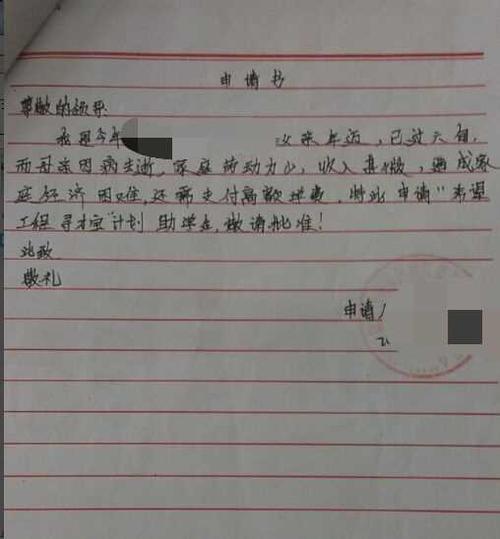 申请书
尊敬的领导:
我是今年 父亲年迈,已过六旬,
而母亲因病去逝,家庭劳动力少,收入甚微,造成家
庭经济困难,还需支付高额学费,特此申请"希望
工程寻才宝"计划 助学金,敬请批准!
此致
敬礼
申请